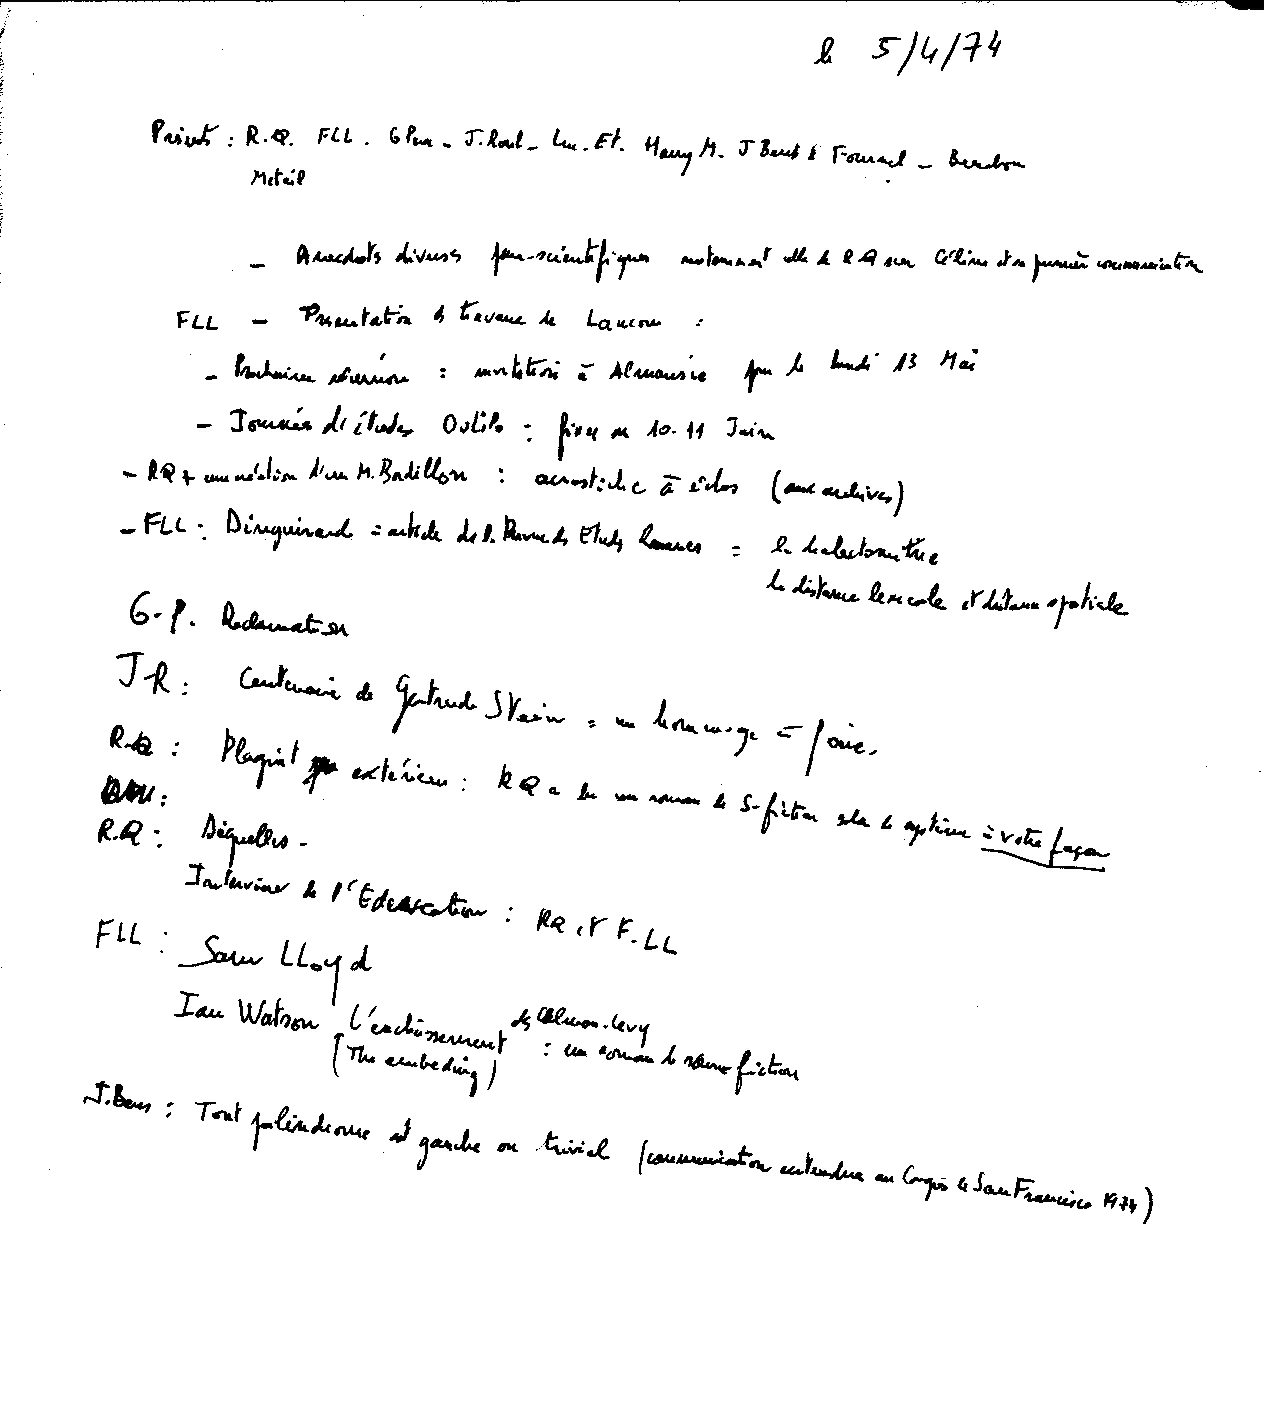 le 5/4/74
Présents : R.Q. FLL. G Perec - J. Roub - Luc. Et. Harry M. J Bens & Fournel - Benabou
Metail
- Anecdotes diverses para-scientifiques notamment celle de RQ sur Céline et sa première communication
FLL - Présentation de travaux de :
- Prochaine réunion : invitation à Almuosnie pour le lundi 13 Mai
- Journées d'études Oulipo : fixées au 10-11 Juin
- RQ + d'un M. Bodillon : acrostiche à échos (aux archives)
- FLL : Dinguirard = article de la Revue des Etudes Romanes = la dialectométrie
la distance lexicale et distance spatiale
G-P. Réclamation
JR : Centenaire de Gertrude Stein = un hommage à faire.
R.Q : Plagiat extérieur : RQ a lu un roman de S-fiction selon le système à votre façon
R.Q :
Interview de l'Education : RQ et F.LL
FLL : Sam LLoyd
Ian Watson L'enchâssement
(The embeding) : un roman de science fiction
J. Bens : Tout palindrome est gauche ou trivial (communication entendue au Congrès de San Francisco 1974)